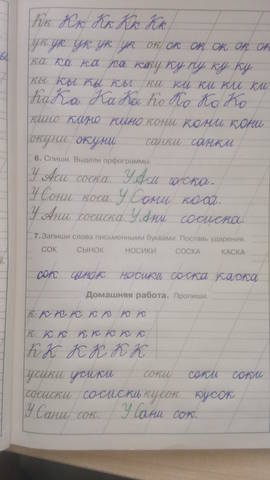 Кк Кк Кк Кк Кк
ук ук ук ук ук ок ок ок ок ок ок
ка ка ка ка ка ку ку ку ку ку
кы кы кы кы ки ки ки ки ки
Ка Ка Ка Ка Ко Ко Ко Ко
кино кино кино кони кони кони
окуни окуни санки санки
6. Спиши. Выдели орфограммы.
У Аси соска. У Аси соска.
У Сони коса. У Сони коса.
У Ани сосиска. У Ани сосиска.
7. Запиши слова письменными буквами. Поставь ударения.
СОК СЫНОК НОСИКИ СОСКА КАСКА
сок сынок носики соска каска
Домашняя работа. Пропиши.
к к к к к к к к
к к к к к к к к
К К К К К К
усики усики соки соки соки
сосиски сосиски кусок кусок
У Сани сок. У Сани сок.